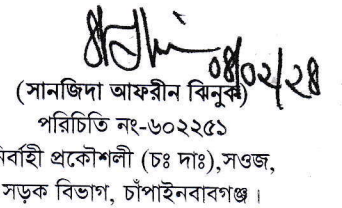 ০৪/০২/২৪
(সানজিদা আফরীন ঝিনুক)
পরিচিতি নং-৬০২২৫১
নির্বাহী প্রকৌশলী (চঃ দাঃ),সওজ,
সড়ক বিভাগ, চাঁপাইনবাবগঞ্জ।